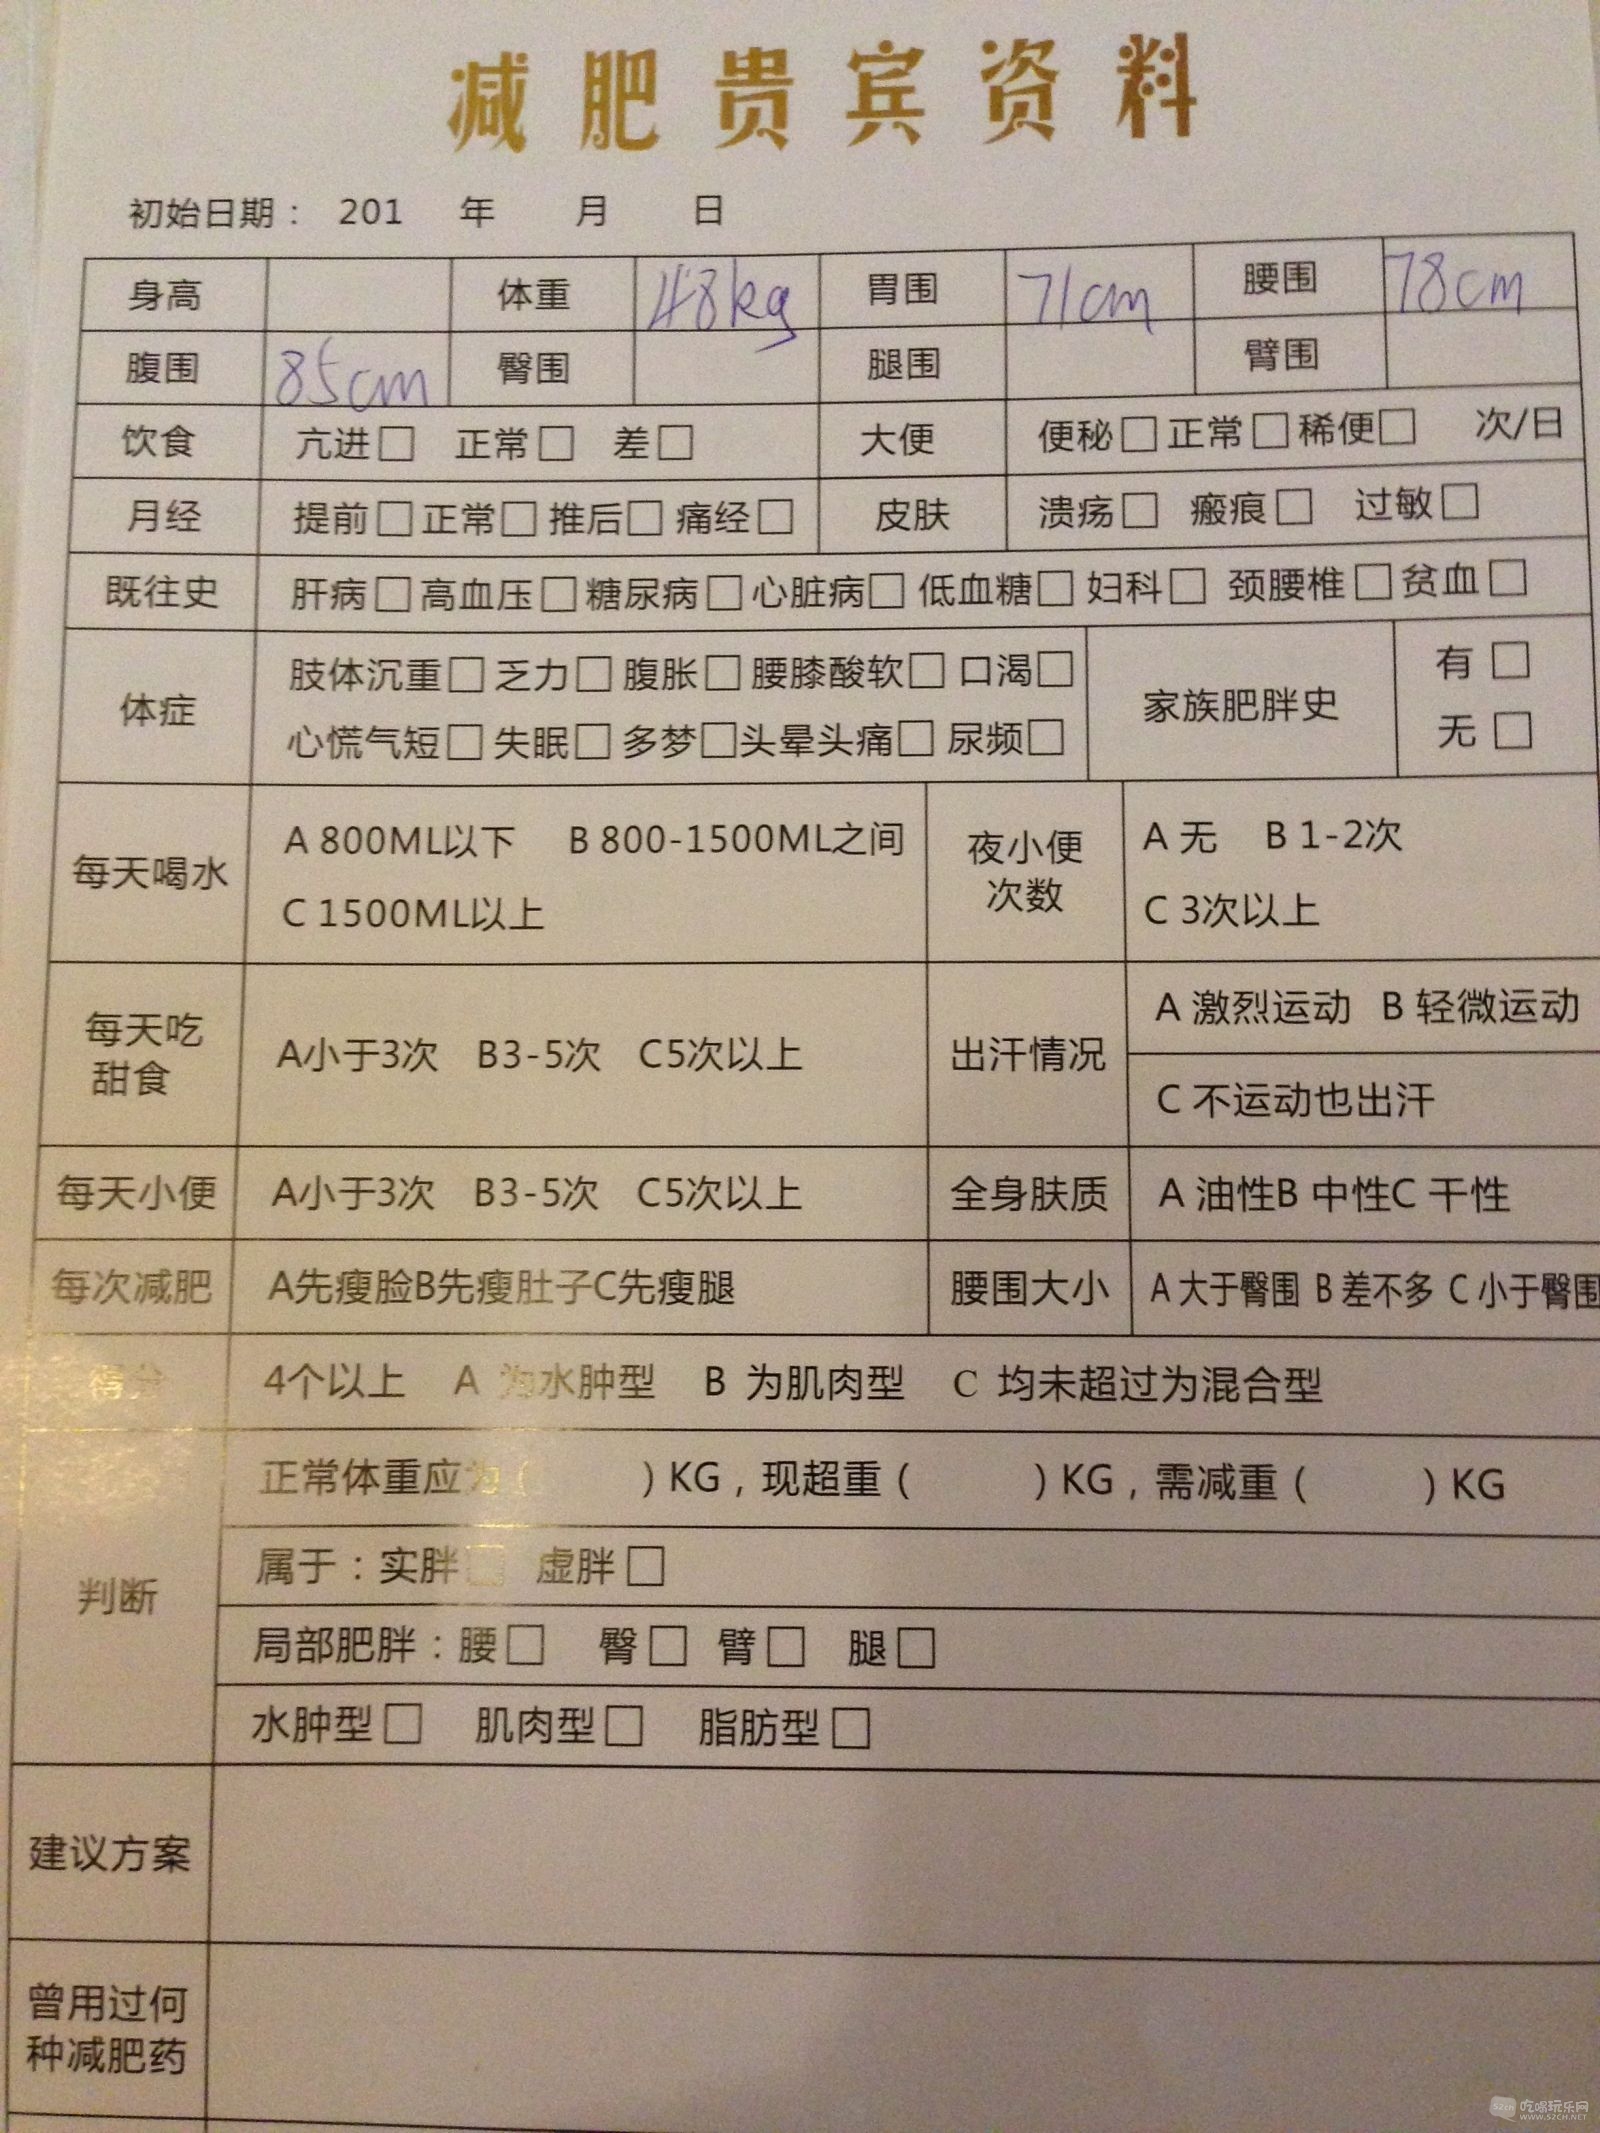 减肥贵宾资料
初始日期： 201 年 月 日
身高 体重 48kg 胃围 71cm 腰围 78cm
腹围 85cm 臀围 腿围 臂围
饮食 亢进□ 正常□ 差□ 大便 便秘□正常□稀便□ 次/日
月经 提前□正常□推后□痛经□ 皮肤 溃疡□ 瘢痕□ 过敏□
既往史 肝病□高血压□糖尿病□心脏病□低血糖□妇科□ 颈腰椎□贫血□
体症 肢体沉重□乏力□腹胀□腰膝酸软□口渴□ 家族肥胖史 有□
心慌气短□失眠□多梦□头晕头痛□尿频□ 无□
每天喝水 A 800ML以下 B 800-1500ML之间 夜小便 A 无 B 1-2次
C 1500ML以上 次数 C 3次以上
每天吃 A 激烈运动 B 轻微运动
甜食 A小于3次 B3-5次 C5次以上 出汗情况
C 不运动也出汗
每天小便 A小于3次 B3-5次 C5次以上 全身肤质 A 油性B 中性C 干性
每次减肥 A先瘦脸B先瘦肚子C先瘦腿 腰围大小 A 大于臀围 B 差不多 C 小于臀围
得分 4个以上 A 为水肿型 B 为肌肉型 C 均未超过为混合型
正常体重应为（ ）KG，现超重（ ）KG，需减重（ ）KG
属于：实胖□ 虚胖□
判断
局部肥胖：腰□ 臀□ 臂□ 腿□
水肿型□ 肌肉型□ 脂肪型□
建议方案
曾用过何
种减肥药
52ch 吃喝玩乐网
WWW.52CH.NET